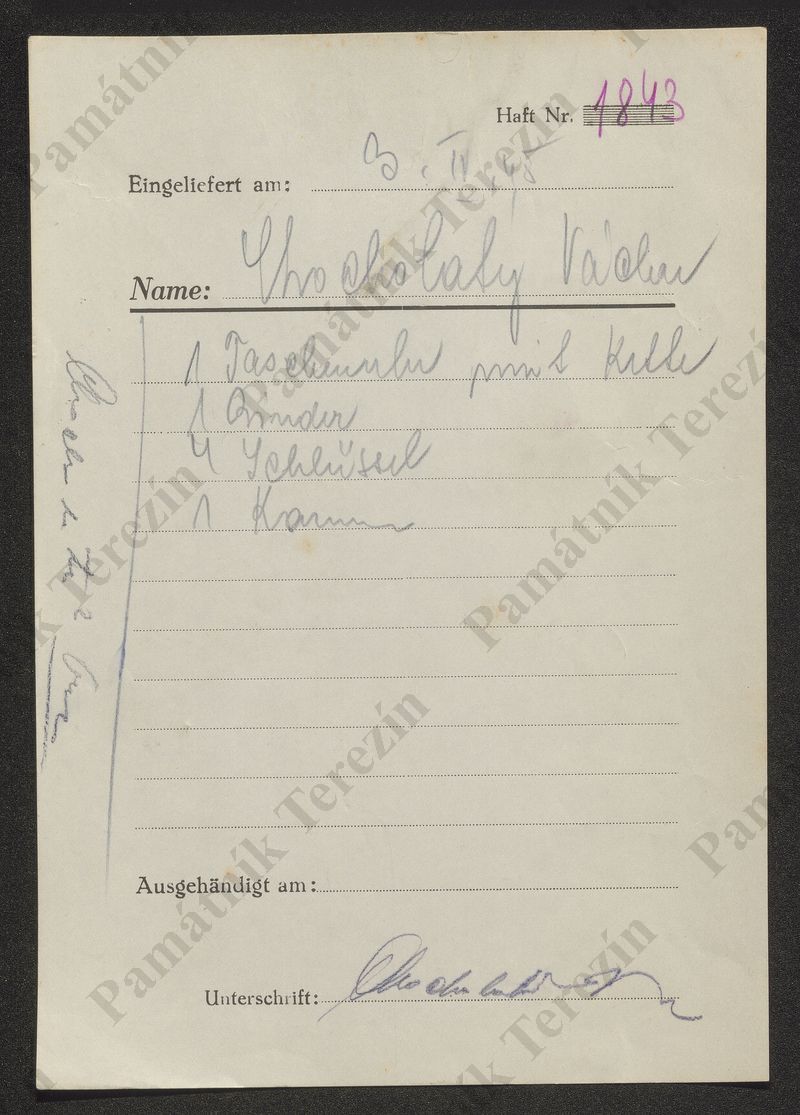 Haft Nr. 1843
Eingeliefert am: 3. IV. 45
Name: Chocholatý Václav
1 Taschenuhr mit Kette
1 Binder
4 Schlüssel
1 Kamm
Ausgehändigt am:
Unterschrift:
Památník Terezín